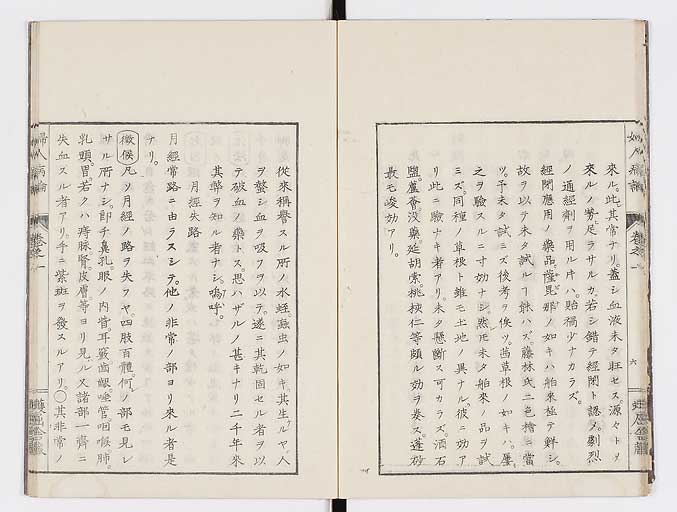 來ル。此其常ナリ。蓋シ血液未タ旺セス。源々トヲ
來ルノ勢。足ラサルカ。若シ錯テ經閉ト認メ。劇烈
ノ通經劑ヲ用ル片ハ。貽禍少ナカラズ。
經閉應用ノ藥品。薩昆那ノ如キハ舶來極テ鮮シ。
故ヲ以テ未タ試ルヿ能ハズ。藤林氏二色檜ニ當
ツ。予未タ試ミズ後考ヲ俟ツ。茜草根ノ如キハ。屢
之ヲ驗スルニ寸効ナシ。然𪜈未タ舶來ノ品ヲ試
ミズ。同種ノ草根ト雖モ土地ノ異ナル。彼ニ功ア
リ此ニ驗ナキ者アリ。未タ懸斷ス可カラズ。酒石
鹽。蘆薈。沒藥。延胡索。桃梗仁等頗ル効ヲ奏ス。蓬砂
最モ峻効アリ。
婦人病論 卷之一 六
從來稱譽スル所ノ水蛭。䗪虫ノ如キ。其生ルヤ。人
ヲ螫シ血ヲ吸フヲ以テ。遂ニ其乾固セル者ヲ以
テ破血ノ藥トス。思ハザルノ甚キナリ二千年來
其弊ヲ知ル者ナシ。嗚呼。
月經失路
月經常路ニ由ラスシテ。他ノ非常ノ部ヨリ來ル者是
ナリ。
徴候 凡ソ月經ノ路ヲ失フヤ。四肢百體。何ノ部モ見レ
サル所ナシ。即チ鼻孔。眼ノ內眥耳竅齒齦唾管咽喉肺。
乳頭。胃。若クハ痔脉腎。皮膚。等ヨリ見ル又諸部一齊ニ
失血スル者アリ。手ニ紫斑ヲ發スルアリ。〇其非常ノ
婦人病論 卷之一